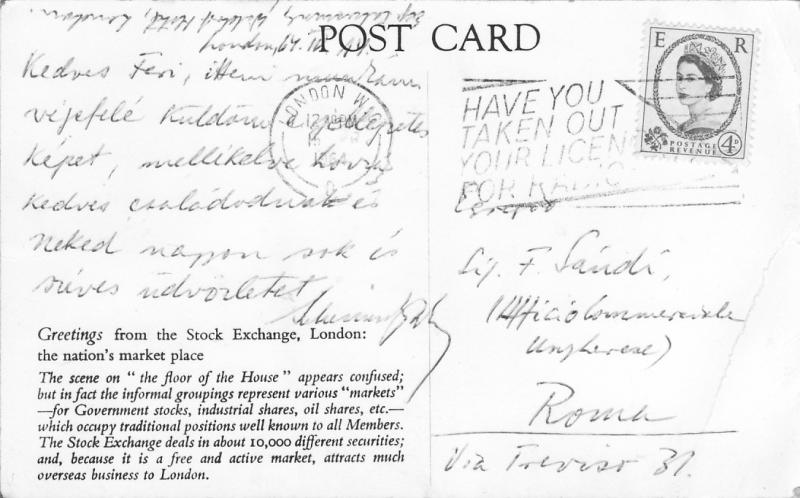 POST CARD
London,
Kedves Feri, itteni munkám
végefelé küldöm e
képet, mellékelve
kedves családodnak és
Neked nagyon sok és
szíves üdvözletet
Greetings from the Stock Exchange, London:
the nation's market place
The scene on "the floor of the House" appears confused;
but in fact the informal groupings represent various "markets"
—for Government stocks, industrial shares, oil shares, etc.—
which occupy traditional positions well known to all Members.
The Stock Exchange deals in about 10,000 different securities;
and, because it is a free and active market, attracts much
overseas business to London.
LONDON W.C.
HAVE YOU
TAKEN OUT
YOUR LICENCE
FOR RADIO
E R
POSTAGE
REVENUE
4D
Sig. F. Sándi,
(Ufficio Commerciale
Ungherese)
Roma
Via Treviso 31.